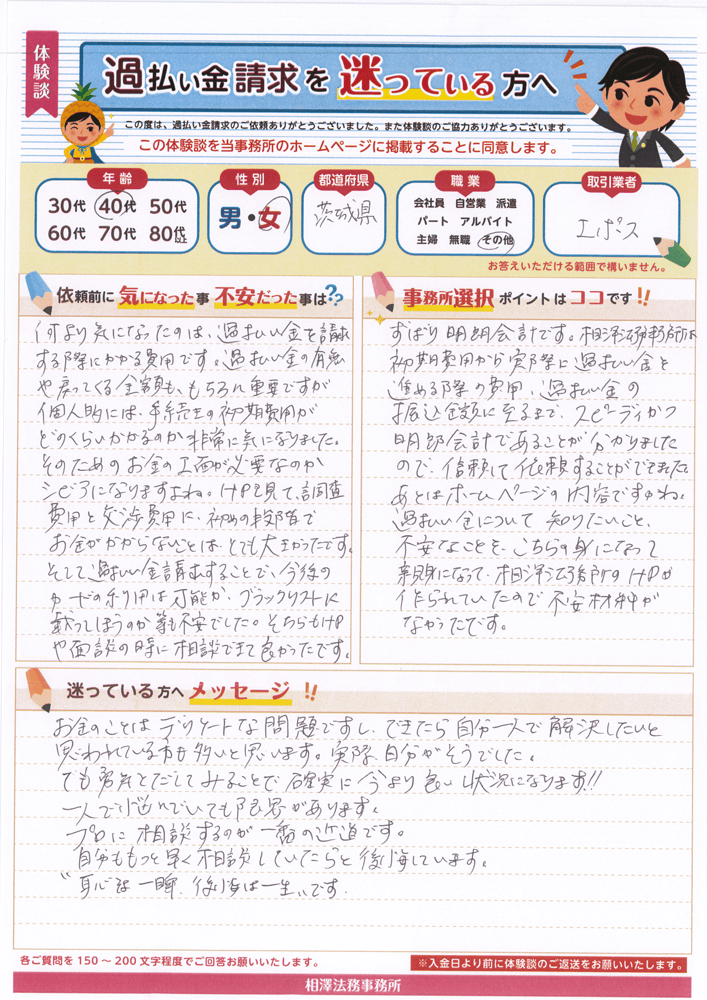 体験談
過払い金請求を迷っている方へ
この度は、過払い金請求のご依頼ありがとうございました。また体験談のご協力ありがとうございます。
この体験談を当事務所のホームページに掲載することに同意します。
年齢
30代 40代 50代
60代 70代 80代以上
性別
男・女
都道府県
茨城県
職業
会社員 自営業 派遣
パート アルバイト
主婦 無職 その他
取引業者
エポス
お答えいただける範囲で構いません。
依頼前に気になった事 不安だった事は??
何より気になったのは、過払い金を請求
する際にかかる費用です。過払い金の有無
や戻ってくる金額も、もちろん重要ですが
個人的には、手続きの初期費用が
どのくらいかかるのか非常に気になりました。
そのためのお金の工面が必要なのか
シビアになりますよね。HPを見て、調査
費用と交渉費用に、初めの段階で
お金がかからないことは、とても大きかったです。
そして過払い金請求することで、今後の
カードの利用は可能か、ブラックリストに
載ってしまうのか等も不安でした。そちらもHP
や面談の時に相談できて良かったです。
事務所選択ポイントはココです!!
ずばり明朗会計です。相澤法務事務所は
初期費用から実際に過払い金を
進める際の費用、過払い金の
振込金額に至るまで、スピーディかつ
明朗会計であることが分かりました
ので、信頼して依頼することができました。
あとはホームページの内容ですかね。
過払い金について知りたいこと、
不安なことを、こちらの身になって
親身になって、相澤法務事務所のHPが
作られていたので不安材料が
なかったです。
迷っている方へメッセージ!!
お金のことはデリケートな問題ですし、できたら自分一人で解決したいと
思われている方も多いと思います。実際自分がそうでした。
でも勇気をだしてみることで確実に今より良い状況になります!!
一人で悩んでいても限界があります。
プロに相談するのが一番の近道です。
自分ももっと早く相談していたらと後悔しています。
"恥は一瞬、後悔は一生"です。
各ご質問を150〜200文字程度でご回答お願いいたします。
※入金日より前に体験談のご返送をお願いいたします。
相澤法務事務所